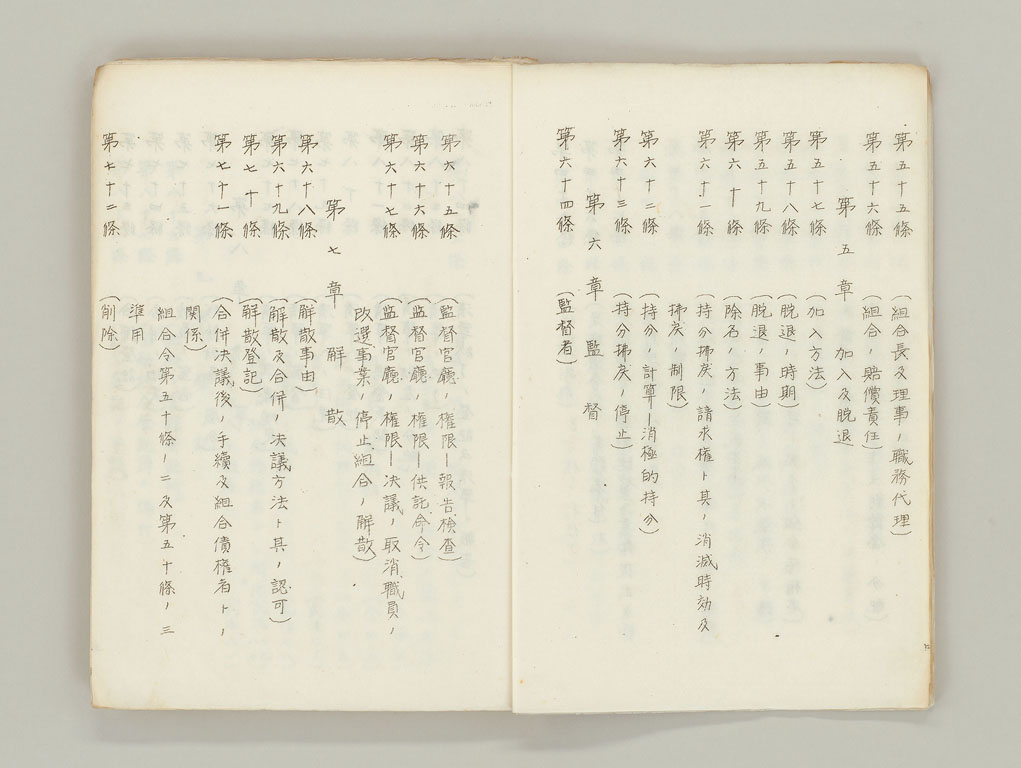 第五十五條　(組合長及理事ノ職務代理)
第五十六條　(組合ノ賠償責任)
第五章　加入及脱退
第五十七條　(加入方法)
第五十八條　(脱退ノ時期)
第五十九條　(脱退ノ事由)
第六十條　(除名ノ方法)
第六十一條　(持分拂戻ノ請求權ト其ノ消滅時効及
拂戻ノ制限)
第六十二條　(持分ノ計算―消極的持分)
第六十三條　(持分拂戻ノ停止)
第六章　監督
第六十四條　(監督者)
第六十五條　(監督官廳ノ權限―報告檢査)
第六十六條　(監督官廳ノ權限―供託命令)
第六十七條　(監督官廳ノ權限―決議ノ取消職員ノ
改選事業ノ停止組合ノ解散)
第七章　解散
第六十八條　(解散事由)
第六十九條　(解散及合併ノ決議方法ト其ノ認可)
第七十條　(解散登記)
第七十一條　(合併決議後ノ手續及組合債權者トノ
関係)
組合令第五十條ノ二及第五十條ノ三
準用
第七十二條　(削除)